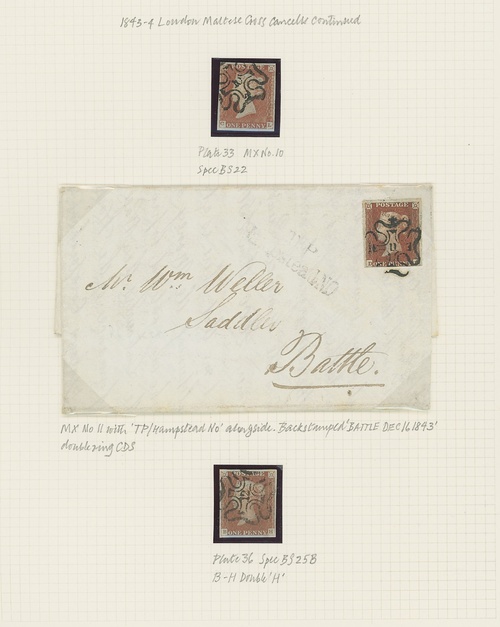 1843-4 London Maltese Cross Cancells continued
ONE PENNY
Plate 33 MX No. 10
Spec BS22
POSTAGE
11
Mr. Wm Weller
Saddler
Battle.
MX No 11 with 'TP/Hampstead No' alongside. Backstamped 'BATTLE DEC 16 1843'
double ring CDS
ONE PENNY
Plate 36 Spec BS25B
B-H Double 'H'